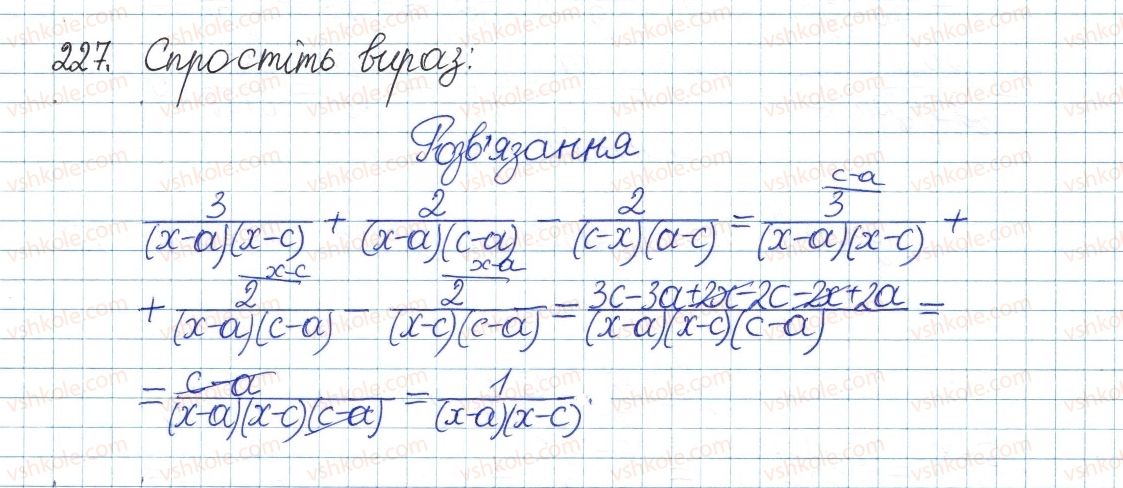 227. Спростіть вираз:
Розв'язання
3/((x-a)(x-c)) + 2/((x-a)(c-a)) - 2/((c-x)(a-c)) = 3 (c-a)/((x-a)(x-c)) +
+ 2 (x-c)/((x-a)(c-a)) - 2 (x-a)/((x-c)(c-a)) = (3c-3a+2x-2c-2x+2a)/((x-a)(x-c)(c-a)) =
= (c-a)/((x-a)(x-c)(c-a)) = 1/((x-a)(x-c)).